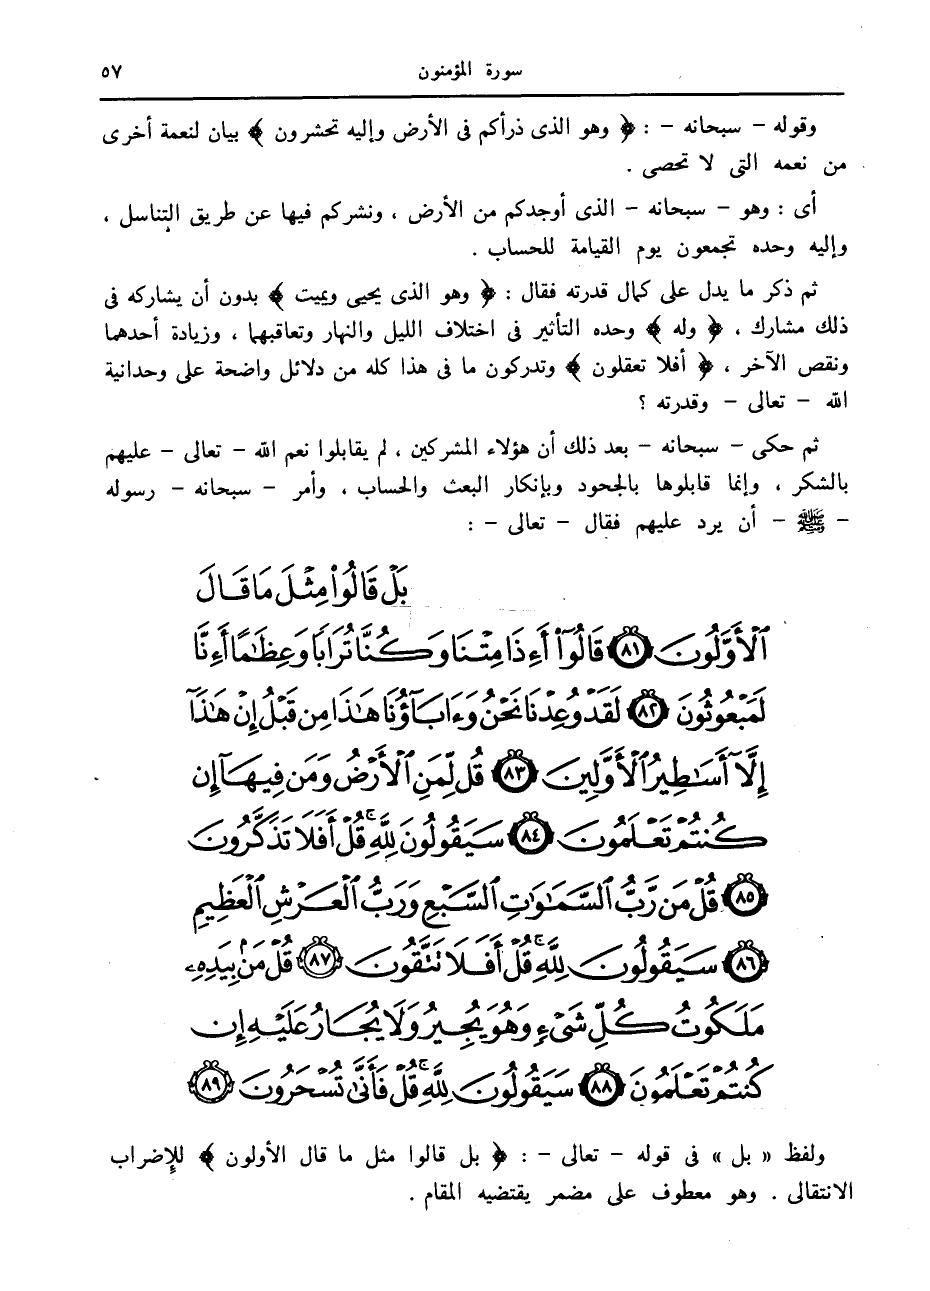 سورة المؤمنون ٥٧
وقوله - سبحانه - : ﴿ وهو الذى ذرأكم فى الأرض وإليه تحشرون ﴾ بيان لنعمة أخرى
من نعمه التى لا تحصى .
أى : وهو - سبحانه - الذى أوجدكم من الأرض ، ونشركم فيها عن طريق التناسل ،
وإليه وحده تجمعون يوم القيامة للحساب .
ثم ذكر ما يدل على كمال قدرته فقال : ﴿ وهو الذى يحيى ويميت ﴾ بدون أن يشاركه فى
ذلك مشارك ، ﴿ وله ﴾ وحده التأثير فى اختلاف الليل والنهار وتعاقبهما ، وزيادة أحدهما
ونقص الآخر ، ﴿ أفلا تعقلون ﴾ وتدركون ما فى هذا كله من دلائل واضحة على وحدانية
الله - تعالى - وقدرته ؟
ثم حكى - سبحانه - بعد ذلك أن هؤلاء المشركين ، لم يقابلوا نعم الله - تعالى - عليهم
بالشكر ، وإنما قابلوها بالجحود وبإنكار البعث والحساب ، وأمر - سبحانه - رسوله
- ﷺ - أن يرد عليهم فقال - تعالى - :
بَلْ قَالُوا۟ مِثْلَ مَا قَالَ
ٱلْأَوَّلُونَ ٨١ قَالُوٓا۟ أَءِذَا مِتْنَا وَكُنَّا تُرَابًا وَعِظَٰمًا أَءِنَّا
لَمَبْعُوثُونَ ٨٢ لَقَدْ وُعِدْنَا نَحْنُ وَءَابَآؤُنَا هَٰذَا مِن قَبْلُ إِنْ هَٰذَآ
إِلَّآ أَسَٰطِيرُ ٱلْأَوَّلِينَ ٨٣ قُل لِّمَنِ ٱلْأَرْضُ وَمَن فِيهَآ إِن
كُنتُمْ تَعْلَمُونَ ٨٤ سَيَقُولُونَ لِلَّهِ ۚ قُلْ أَفَلَا تَذَكَّرُونَ
٨٥ قُلْ مَن رَّبُّ ٱلسَّمَٰوَٰتِ ٱلسَّبْعِ وَرَبُّ ٱلْعَرْشِ ٱلْعَظِيمِ
٨٦ سَيَقُولُونَ لِلَّهِ ۚ قُلْ أَفَلَا تَتَّقُونَ ٨٧ قُلْ مَنۢ بِيَدِهِۦ
مَلَكُوتُ كُلِّ شَىْءٍ وَهُوَ يُجِيرُ وَلَا يُجَارُ عَلَيْهِ إِن
كُنتُمْ تَعْلَمُونَ ٨٨ سَيَقُولُونَ لِلَّهِ ۚ قُلْ فَأَنَّىٰ تُسْحَرُونَ ٨٩
ولفظ « بل » فى قوله - تعالى - : ﴿ بل قالوا مثل ما قال الأولون ﴾ للإضراب
الانتقالى . وهو معطوف على مضمر يقتضيه المقام .